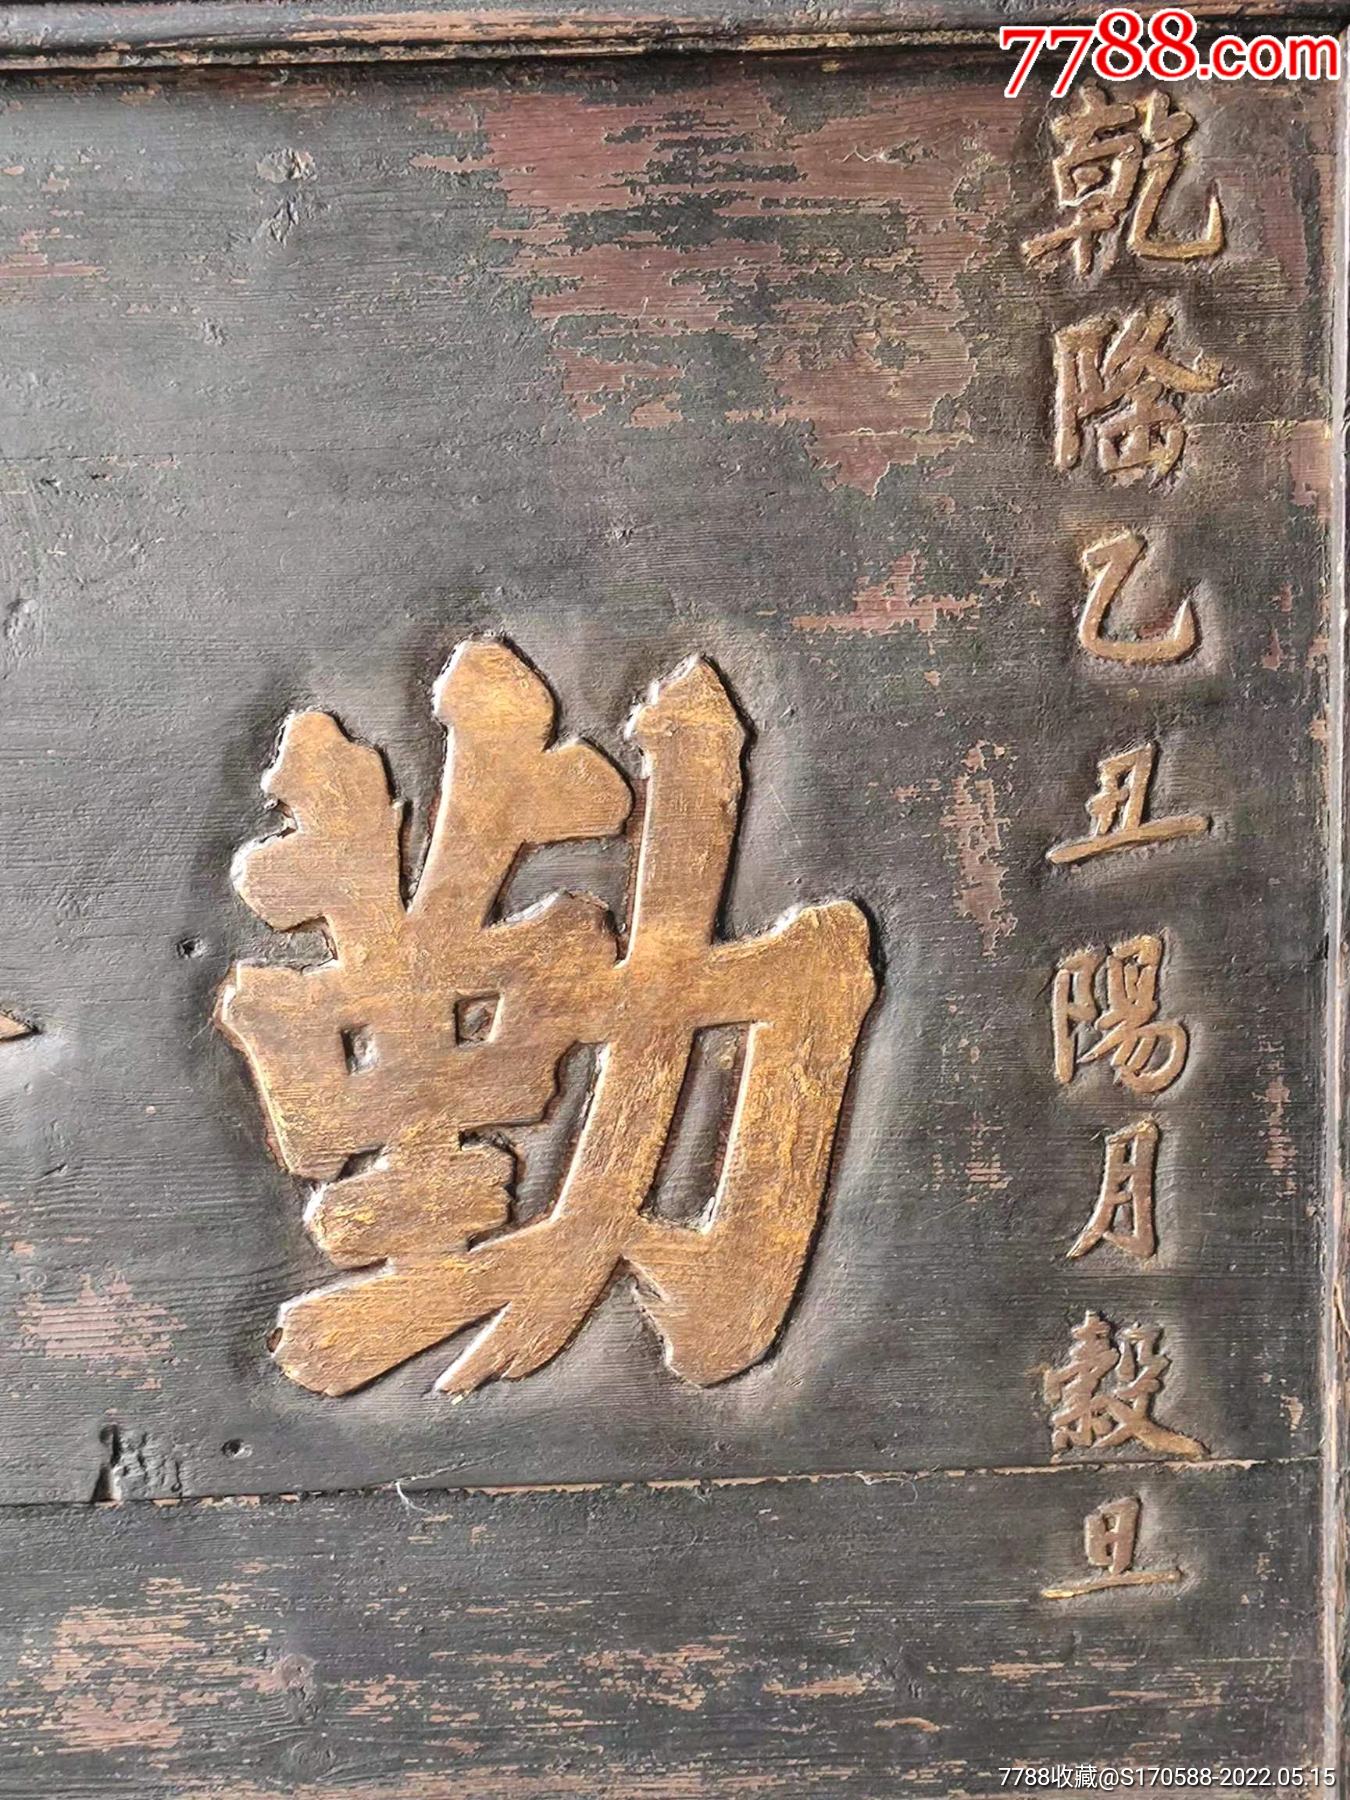 7788.com
乾隆乙丑陽月穀旦
勤
7788收藏@S170588-2022.05.15